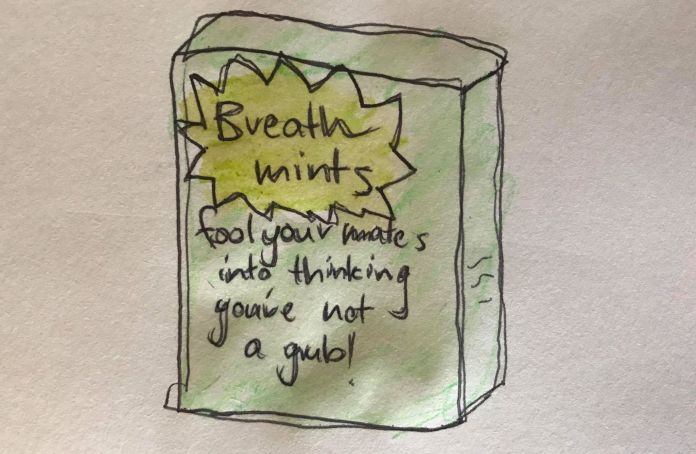 Breath
mints
fool your mates
into thinking
you're not
a grub!